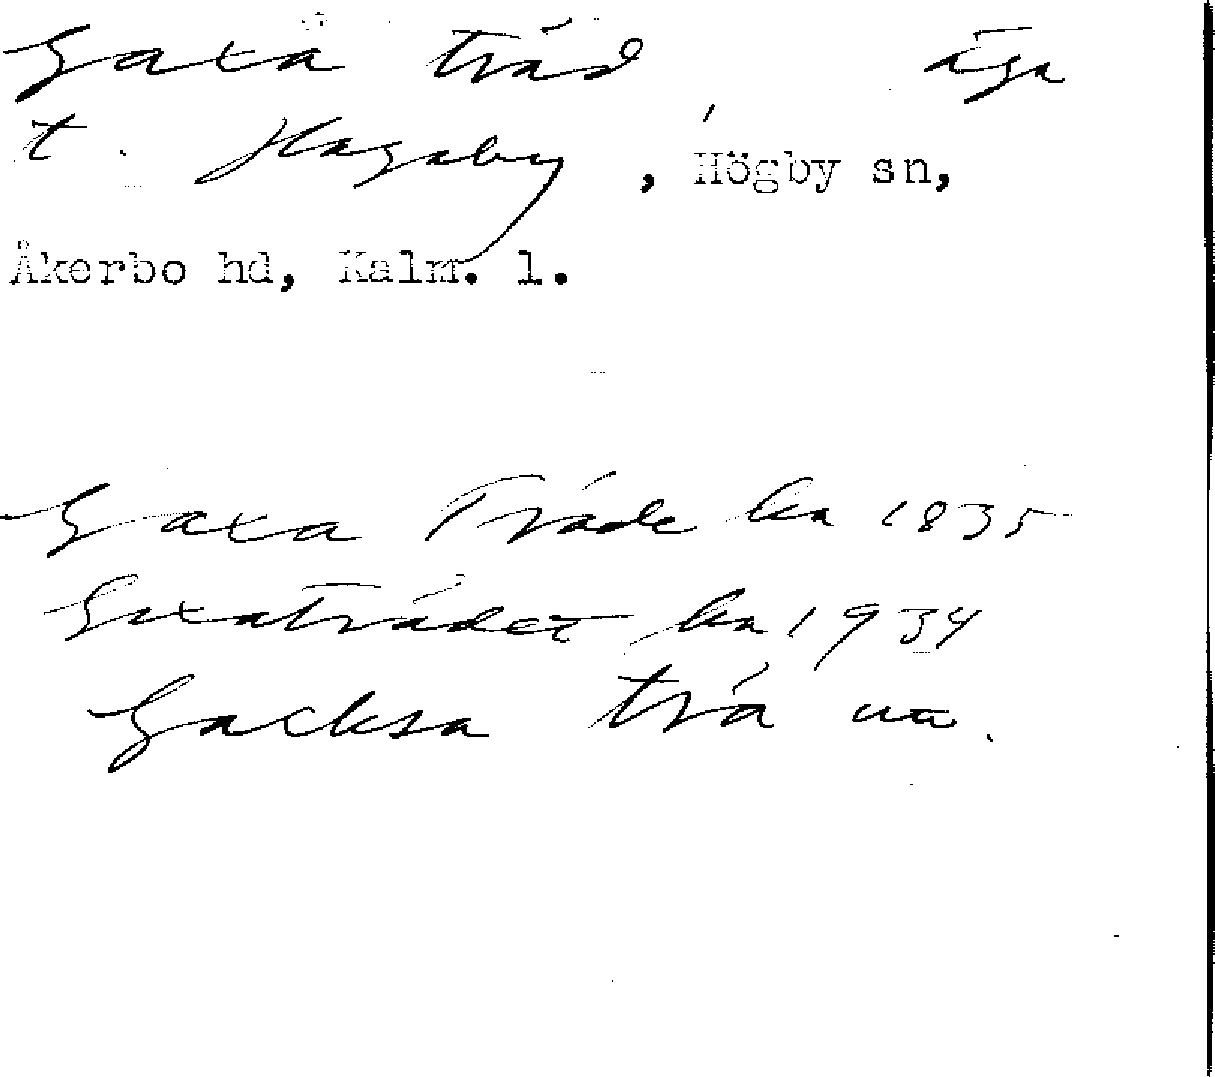 Gaxa träd äga
t. Hagaby, Högby sn,
Åkerbo hd, Kalm. l.
Gaxa Träde ka 1835
Gaxaträdet ka 1934
Gacksa trä ua.